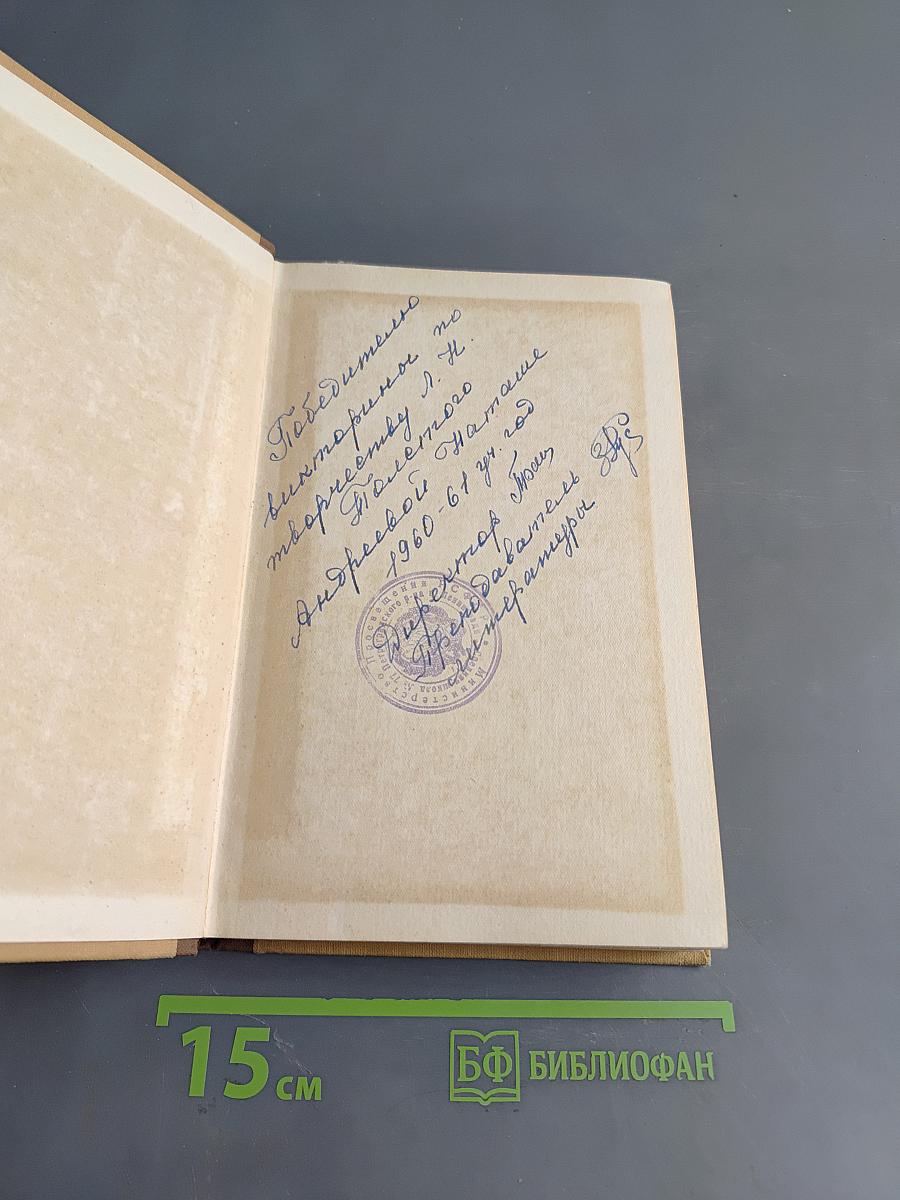 Победителю
викторины по
творчеству Л. Н.
Толстого
Андреевой Наташе
1960-61 уч. год
Директор
Преподаватель
литературы
Министерство Просвещения РСФСР
школа № 77 Петроградского р-на
15 см
БФ БИБЛИОФАН